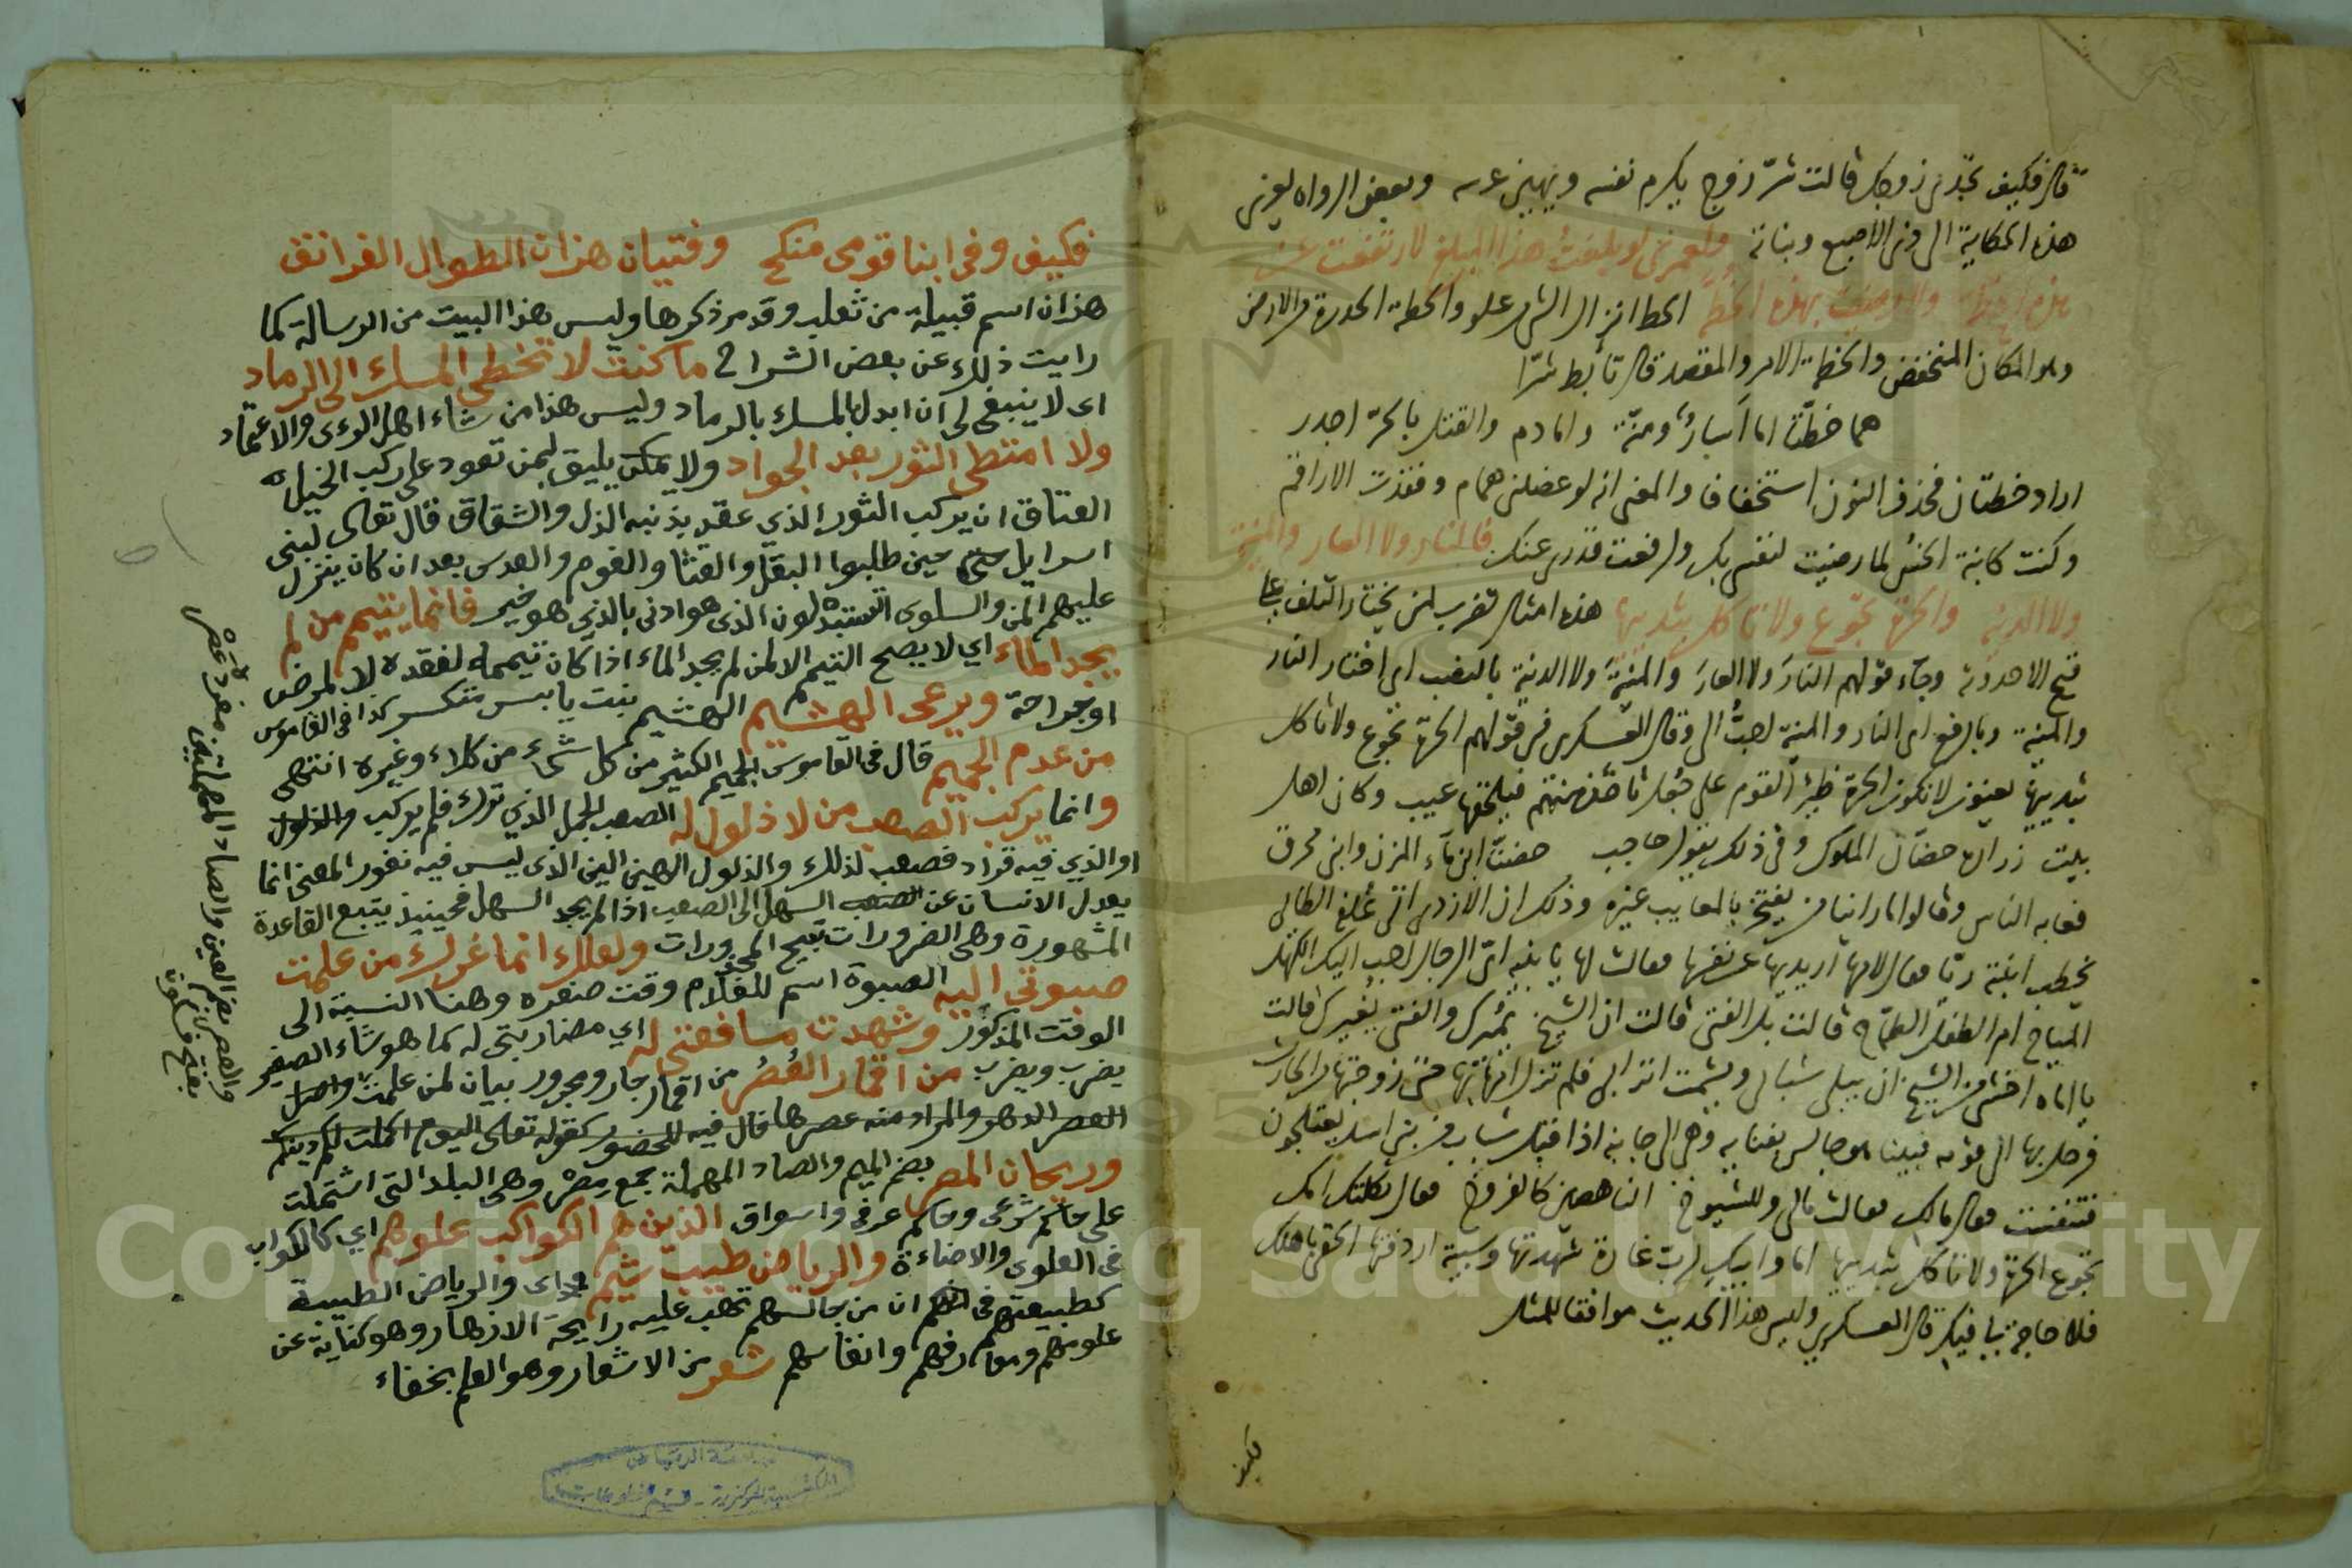 قال فكيف تجدين زوجك قالت شرّ زوج يكرم نفسه ويهين عرسه وبعض الرواه يعزى
هذه الحكاية الى ذى الاصبع وبناته ولعمرى لو بلغت هذا المبلغ لارتفعت عن
هذه الحطة ولا رضيت بهذه الخطة الحط انزال الشى من علو والحطة الحدرة من الارض
وهو المكان المنخفض والخطة الامر والمقصد قال تأبط شرّا
هما خطّتا اما اسارٌ ومنّة واما دم والقتل بالحرّ اجدر
اراد خطتان فحذف النون استخفافا والمعنى انه لو عضلنى همام وفقدت الاراقم
وكنت كابنة الخسّ لما رضيت لنفسى بك ولرفعت قدرى عنك فالنار ولا العار والمنية
ولا الدنية والحرة تجوع ولا تاكل بثدييها هذه امثال تضرب لمن يختار التلف على
قبح الاحدوثة وجاء قولهم النارَ ولا العارَ والمنيةَ ولا الدنية بالنصب اى اختار النار
والمنية وبالرفع اى النار والمنية احبُّ الى وقال العسكرى فى قولهم الحرة تجوع ولا تاكل
بثدييها يعنون لا تكون الحرة ظئر القوم على جُعل تاخذه منهم فيلحقها عيب وكان اهل
بيت زرارة حضّان الملوك وفى ذلك يقول حاجب حضنّا ابن ماء المزن وابنى محرق
فعابه الناس وقالوا ما راينا من يفتخر بالمعايب غيره وذلك ان الازدى اتى علقمة الطائى
يخطب ابنته ربا فقال لامها اريديها عن نفسها فقالت لها يا بنية اىّ الرجال احب اليك الكهل
الميّاح ام الطفل الطمّاح قالت بل الفتى قالت ان الشيخ يميرك والفتى يُغيرك قالت
يا اماه اخشى من الشيخ ان يبلى شبابى ويشمت اترابى فلم تزل امها بها حتى زوجتها الحارث
فرحل بها الى قومه فبينا هو جالس بفنايه وهى الى جانبه اذا قبل شباب من بنى اسد يعتلجون
فتنفست فقال مالك فقالت مالى وللشيوخ الناهضين كالفروخ فقال ثكلتك امك
تجوع الحرة ولا تاكل بثدييها اما وابيك لربّ غارة شهدتها وسبية اردفتها الحقى باهلك
فلا حاجة لى فيك قال العسكرى وليس هذا الحديث موافقا للمثل
فكيف
فكيف وفى ابنا قومى منكح وفتيان هزان الطوال الغرانق
هذان اسم قبيلة من ثعلب وقد مر ذكرها وليس هذا البيت من الرسالة كما
رايت ذلك عن بعض الشراح ما كنت لا تخطى المسك الى الرماد
اى لا ينبغى لى ان ابدل المسك بالرماد وليس هذا من شاء اهل الوى والاعتماد
ولا امتطى الثور بعد الجواد ولا يمكن يليق لمن تعود على ركب الخيل
العتاق ان يركب الثور الذي عقد بذنبه الذل والشقاق قال تعالى لبنى
اسرايل حتى حين طلبوا البقل والقثا والفوم والعدس بعد ان كان ينزل
عليهم المن والسلوى اتستبدلون الذى هو ادنى بالذي هو خير فانما يتيمم من لم
يجد الماء اي لا يصح التيمم الا لمن لم يجد الماء اذا كان تيممه لفقده لا لمرض
او جراحة ويرعى الهشيم الهشيم نبت يابس متكسر كذا فى القاموس
من عدم الجميم قال فى القاموس الجميم الكثير من كل شىء من كلاء وغيره انتهى
وانما يركب الصعب من لا ذلول له الصعب الجمل الذي ترك فلم يركب والذلول
او الذي فيه قراد فصعب لذلك والذلول الهين الين الذى ليس فيه نفور المعنى انما
يعدل الانسان عن الصعب السهل الى الصعب اذا لم يجد السهل فحينيذ يتبع القاعدة
المشهورة وهى الضرورات تبيح المحذورات ولعلك انما غرك من علمت
صبوتى اليه الصبوة اسم للغلام وقت صغره وهنا النسبة الى
الوقت المذكور وشهدت مسافعتى له اي مضاربتى له كما هو شاء الصغير
يضرب ويضرب من اقمار العُصُر من اقمار جار ومجرور بيان لمن علمت واصل
العصر الدهر والمراد منه عصرها قال فيه للحضور كقوله تعالى اليوم اكملت لكم دينكم
وريحان المصر بضم الميم والصاد المهملة جمع مِصْر وهى البلد التى اشتملت
على حاكم شرعى وحاكم عرفى واسواق الذين هم الكواكب علوهم اي كالكواكب
فى العلوى والاضاءة والرياض طيب شيم اى والرياض الطيبة
كطبيعتهم فى انهم ان من جالسهم تهب عليه رايحة الازهار وهو كناية عن
علومهم ومعارفهم وانفاسهم شعر من الاشعار وهو العلم بخفاء
والعصر بضم العين والصاد المهملتين مفرده عَصْر
بفتح فسكون
جامعة الرياض
المكتبة المركزية - قسم المخطوطات
Copyright © King Saud University